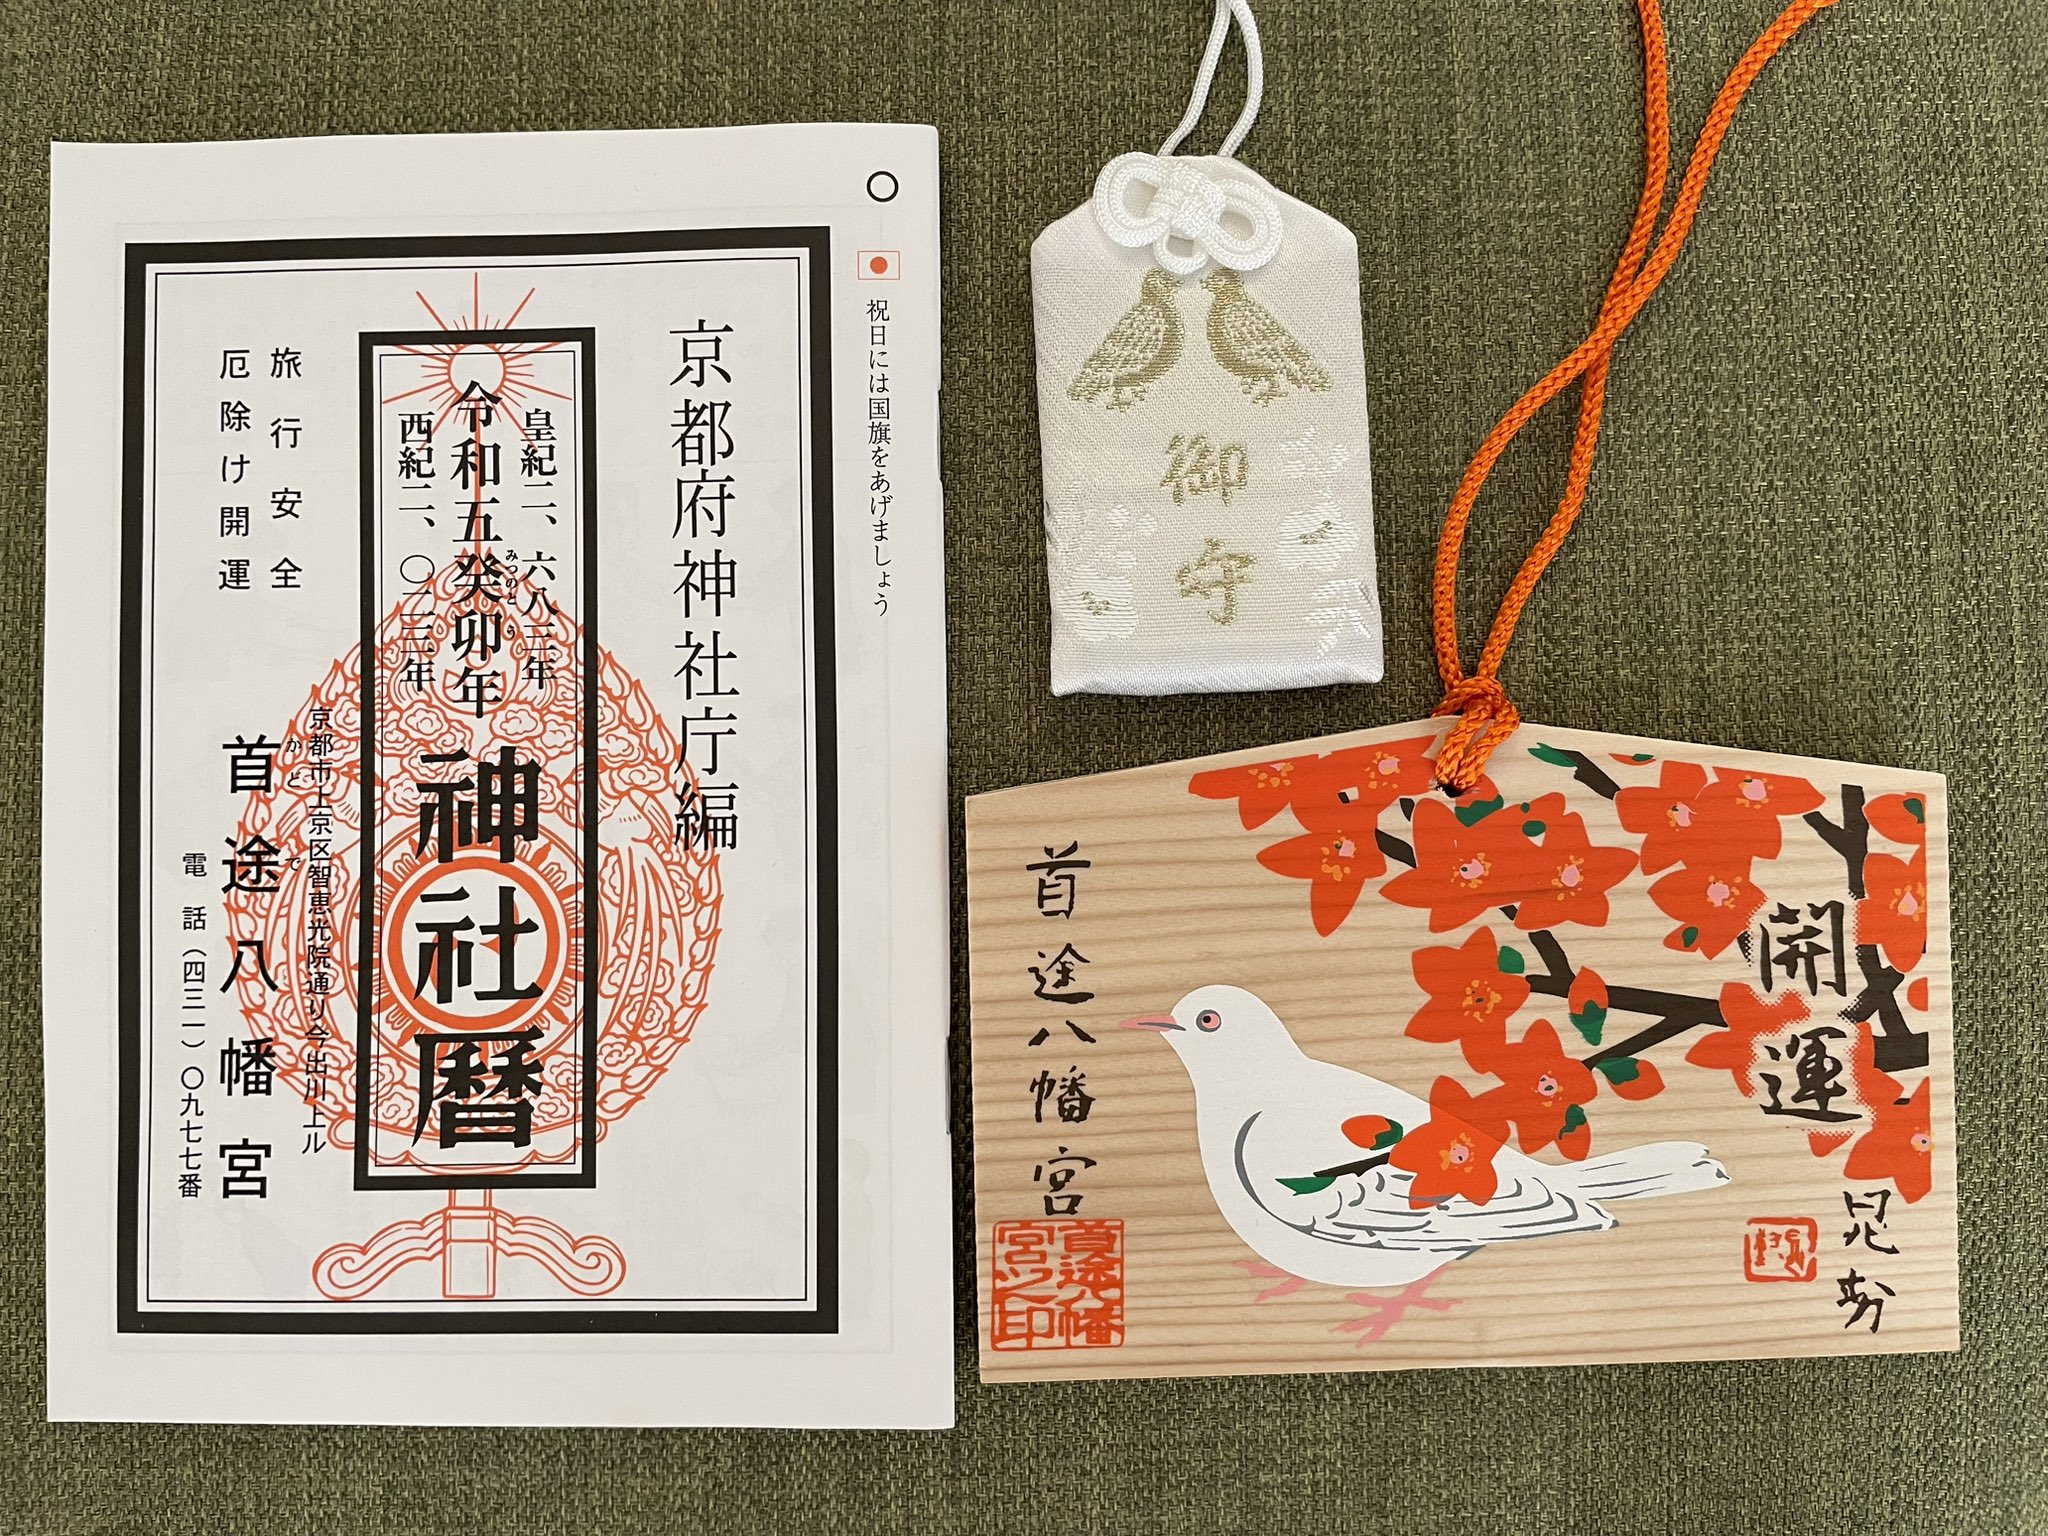 ○
祝日には国旗をあげましょう
京都府神社庁編
皇紀二、六八三年
令和五癸卯年
みつのと
う
西紀二、〇二三年
神社暦
旅行安全
厄除け開運
京都市上京区智恵光院通り今出川上ル
かどで
首途八幡宮
電話（四三一）〇九七七番
御守
開運
首途八幡宮
首途八幡
宮之印